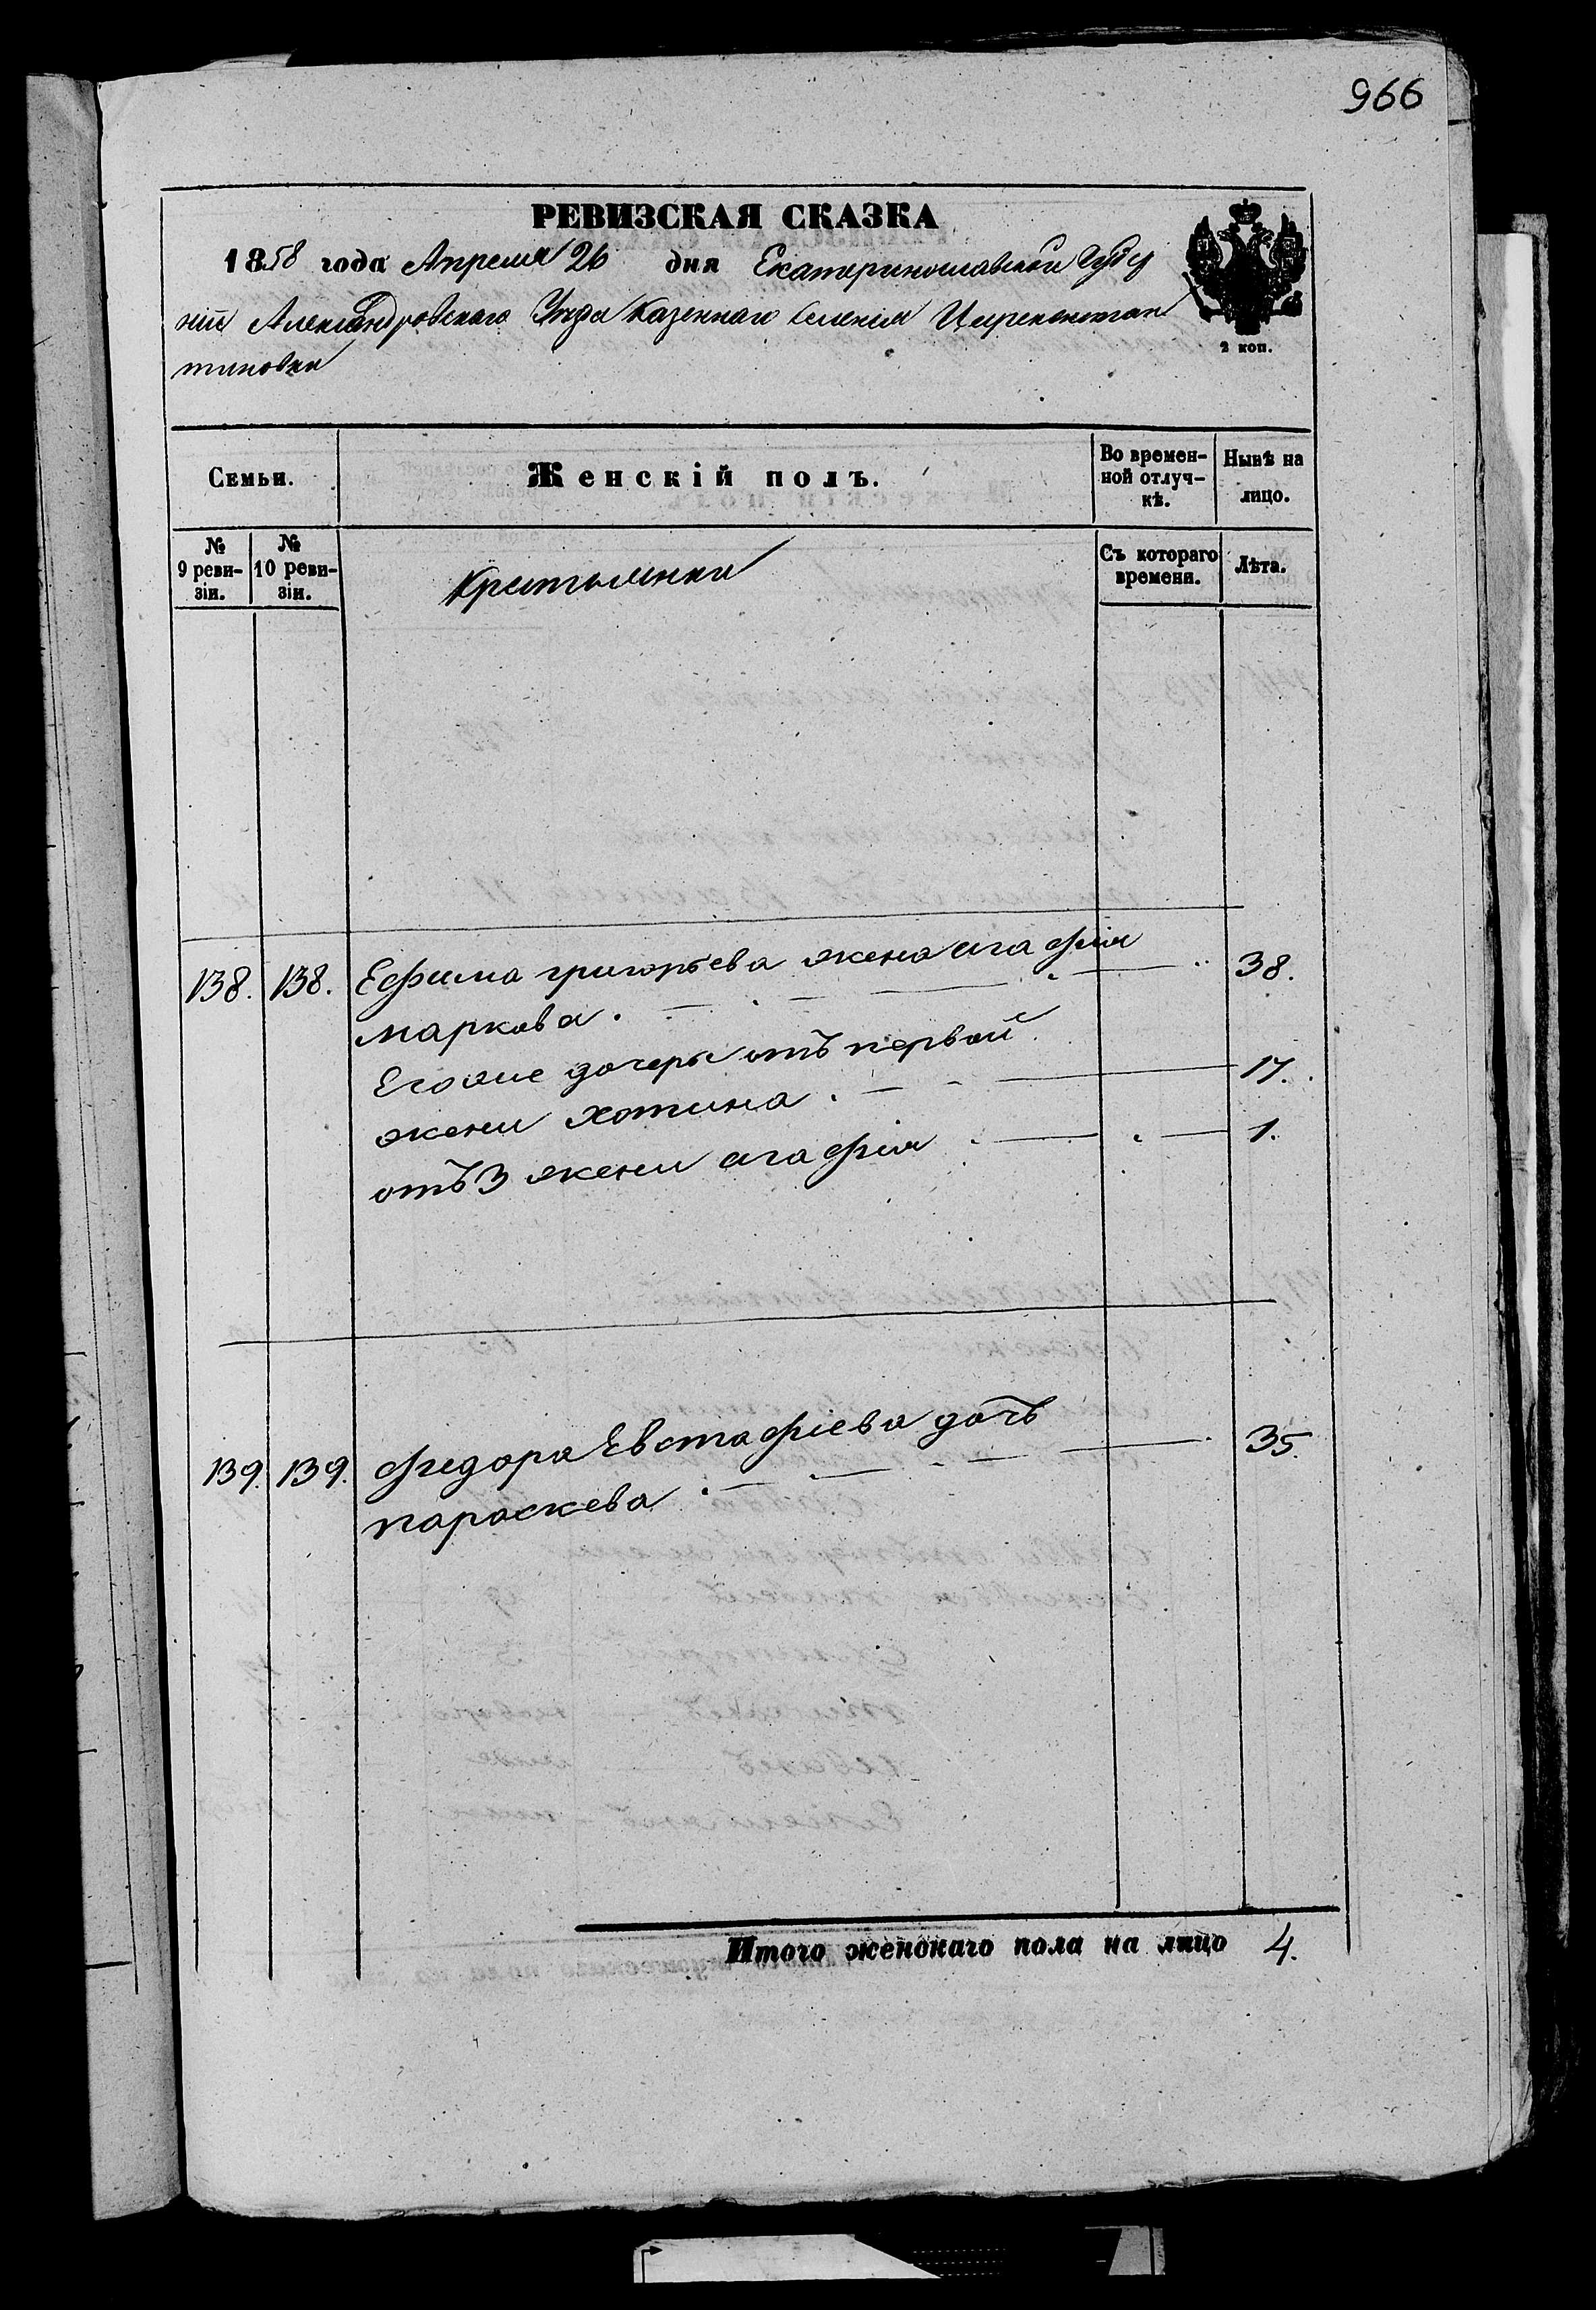 966
РЕВИЗСКАЯ СКАЗКА
1858 года Апреля 26 дня Екатеринославской Губер
ніи Александровскаго Уезда Казеннаго Селенія Цареконстан
тиновки
2 коп.
Семьи.
Женскій полъ.
Во времен-
ной отлуч-
кѣ.
Нынѣ на
лицо.
№
9 реви-
зіи.
№
10 реви-
зіи.
Крестьянки
Съ котораго
времени.
Лѣта.
138. 138. Ефима григорьева жена агафія 38.
маркова.
Егоже дочеры отъ первой
жени хотина. 17.
отъ 3 жени агафія 1.
139. 139. федора Евстафіева дочь 35.
параскева
Итого женскаго пола на лицо 4.